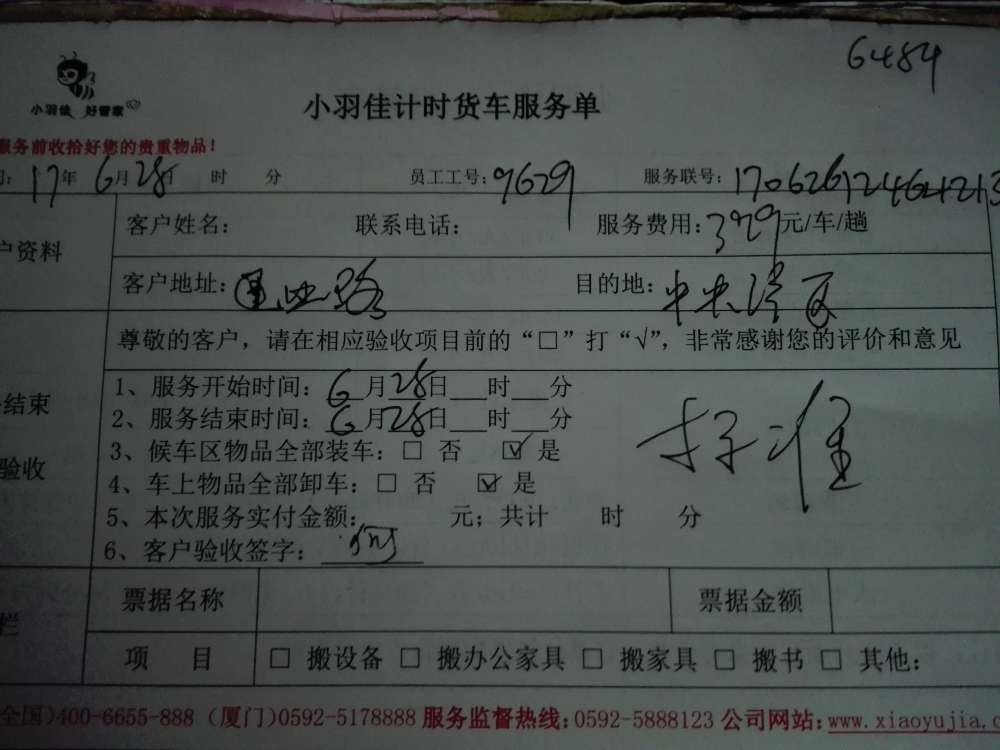 6484
小羽佳 好管家
小羽佳计时货车服务单
服务前收拾好您的贵重物品！
17年 6月 28日 时 分 员工工号：9629 服务联号：
客户姓名： 联系电话： 服务费用：399元/车/趟
户资料
客户地址： 路 目的地：中央
尊敬的客户，请在相应验收项目前的“□”打“√”，非常感谢您的评价和意见
1、服务开始时间：6月28日___时___分
结束
2、服务结束时间：6月28日___时___分
3、候车区物品全部装车：□ 否 ☑ 是
验收
4、车上物品全部卸车：□ 否 ☑ 是
5、本次服务实付金额： 元；共计 时 分
6、客户验收签字：
票据名称 票据金额
栏
项 目 □ 搬设备 □ 搬办公家具 □ 搬家具 □ 搬书 □ 其他：
全国)400-6655-888 (厦门)0592-5178888 服务监督热线：0592-5888123 公司网站：www.xiaoyujia.c